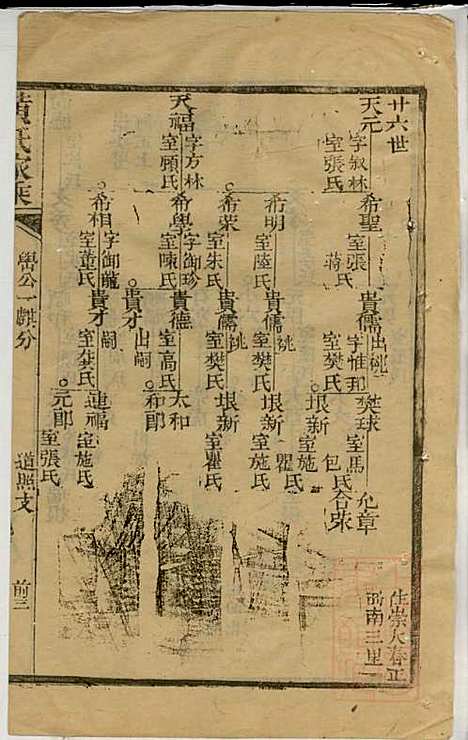 廿六世
天元
字叔林
室張氏
希聖
室張
蔣氏
貴儒
出祧
字惟邦
室樊氏
樊球
室馬
包氏合張
允章
住崇大春正
南三里
希明
室陸氏
貴儒
祧
室樊氏
垠新
室施
瞿氏
希荣
室朱氏
貴儒
祧
室樊氏
垠新
室施氏
天福
字方林
室顧氏
希學
字御珍
室陳氏
貴德
室高氏
太和
垠新
室瞿氏
貴才
出嗣
和郎
希相
字御龍
室董氏
貴才
嗣
室龚氏
蓮福
室施氏
元郎
室張氏
黃氏家乘
礐公一麒分
道熙支
前三